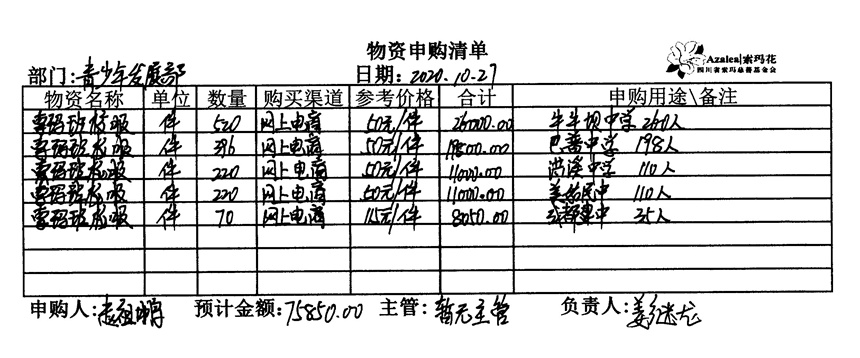 物资申购清单
Azalea 索玛花
四川省索玛慈善基金会
部门:青少年发展部 日期:2020.10.27
物资名称 单位 数量 购买渠道 参考价格 合计 申购用途\备注
索玛班校服 件 520 网上电商 50元/件 26000.00 牛牛坝中学 260人
索玛班校服 件 396 网上电商 50元/件 19800.00 巴普中学 198人
索玛班校服 件 220 网上电商 50元/件 11000.00 洪溪中学 110人
索玛班校服 件 220 网上电商 50元/件 11000.00 美姑民中 110人
索玛班校服 件 70 网上电商 115元/件 8050.00 中 35人
申购人: 预计金额:75850.00 主管:暂无主管 负责人:姜